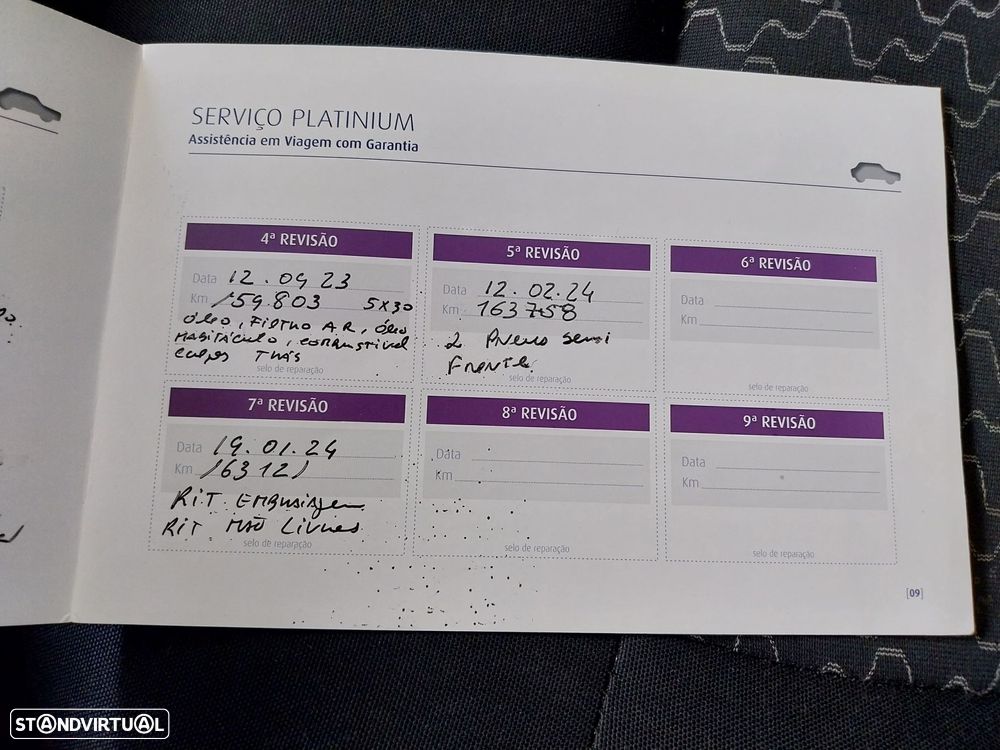 SERVIÇO PLATINIUM
Assistência em Viagem com Garantia
4ª REVISÃO
Data 12.04 23
Km 159.803 5x30
óleo, Filtro AR, óleo
Habitáculo, combustível
selo de reparação
5ª REVISÃO
Data 12.02.24
Km 163758
2 Pneus semi
Frente
selo de reparação
6ª REVISÃO
Data
Km
selo de reparação
7ª REVISÃO
Data 19.01.24
Km 163121
KiT Embraiagem
KiT Mão Livres
selo de reparação
8ª REVISÃO
Data
Km
selo de reparação
9ª REVISÃO
Data
Km
selo de reparação
[09]
STANDVIRTUAL